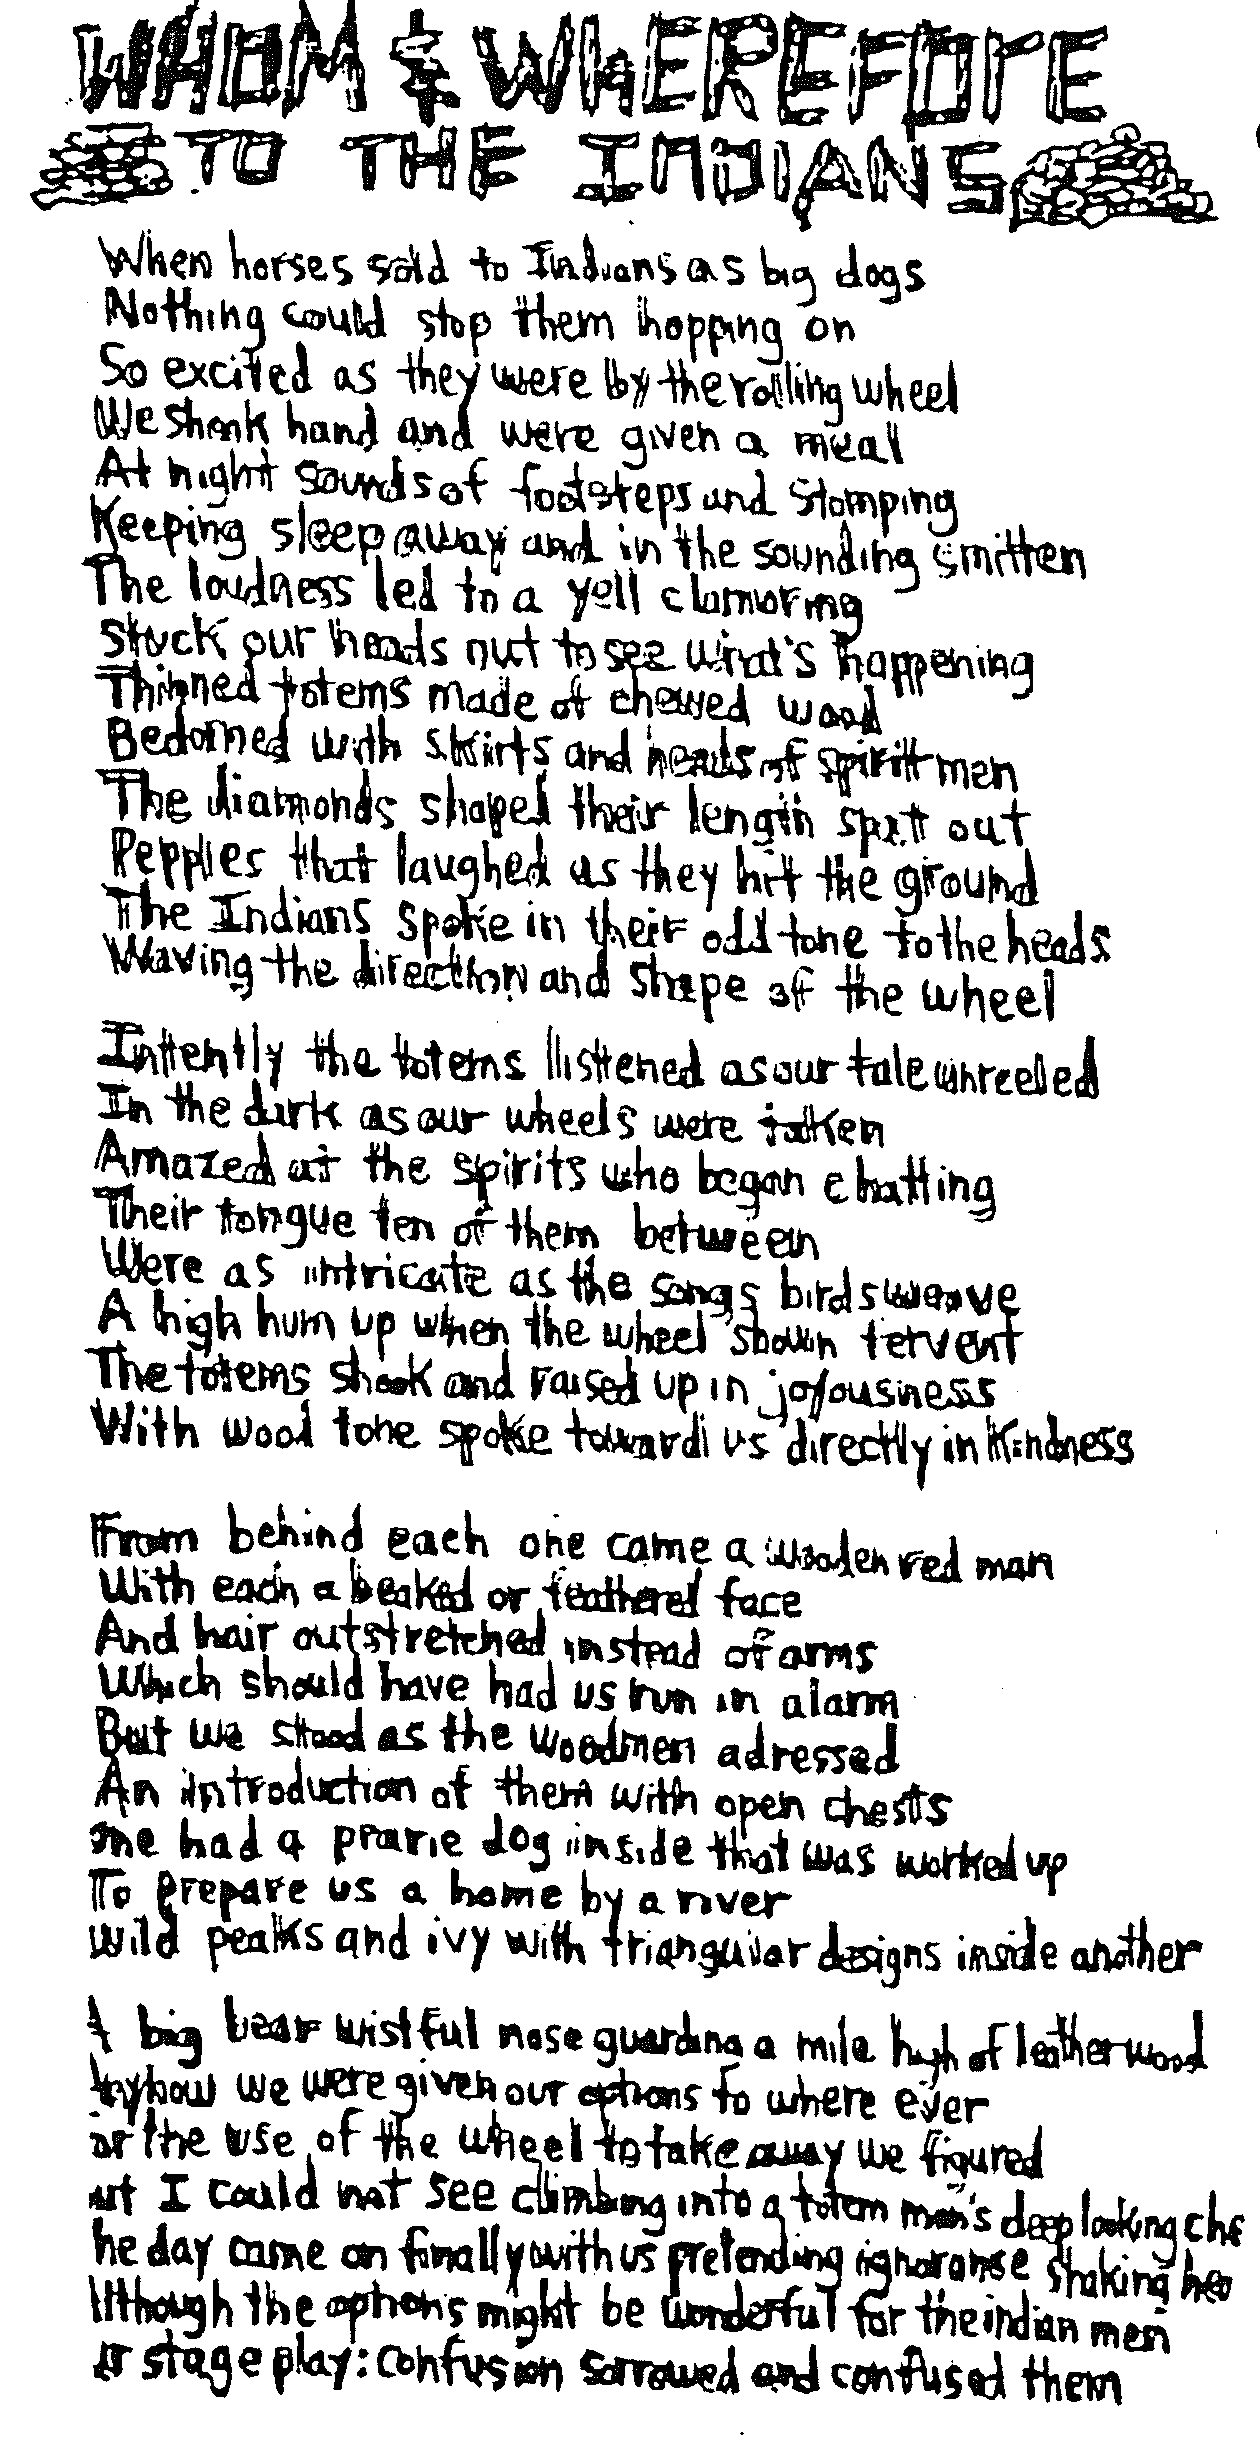 WHOM & WHEREFORE
TO THE INDIANS
When horses sold to Indians as big dogs
Nothing could stop them hopping on
So excited as they were by the rolling wheel
We shook hand and were given a meal
At night sounds of footsteps and stomping
Keeping sleep away and in the sounding smitten
The loudness led to a yell clamoring
Stuck our heads out to see what's happening
Thinned totems made of chewed wood
Bedorned with skirts and heads of spirit men
The diamonds shaped their length spat out
Pepples that laughed as they hit the ground
The Indians spoke in their odd tone to the heads
Waving the direction and shape of the wheel
Intently the totems listened as our tale unreeled
In the dark as our wheels were taken
Amazed at the spirits who began chatting
Their tongue ten of them between
Were as intricate as the songs birds weave
A high hum up when the wheel shown fervent
The totems shook and raised up in joyousness
With wood tone spoke toward us directly in kindness
From behind each one came a wooden red man
With each a beaked or feathered face
And hair outstretched instead of arms
Which should have had us run in alarm
But we stood as the woodmen adressed
An introduction of them with open chests
One had a prarie dog inside that was worked up
To prepare us a home by a river
Wild peaks and ivy with triangular designs inside another
A big bear wistful nose guarding a mile high of leather wood
nyhow we were given our options to where ever
or the use of the wheel to take away we figured
ut I could not see climbing into a totem man's deep looking che
he day came on finally with us pretending ignoranse shaking hea
lthough the options might be wonderful for the indian men
r stage play: confusion sorrowed and confused them